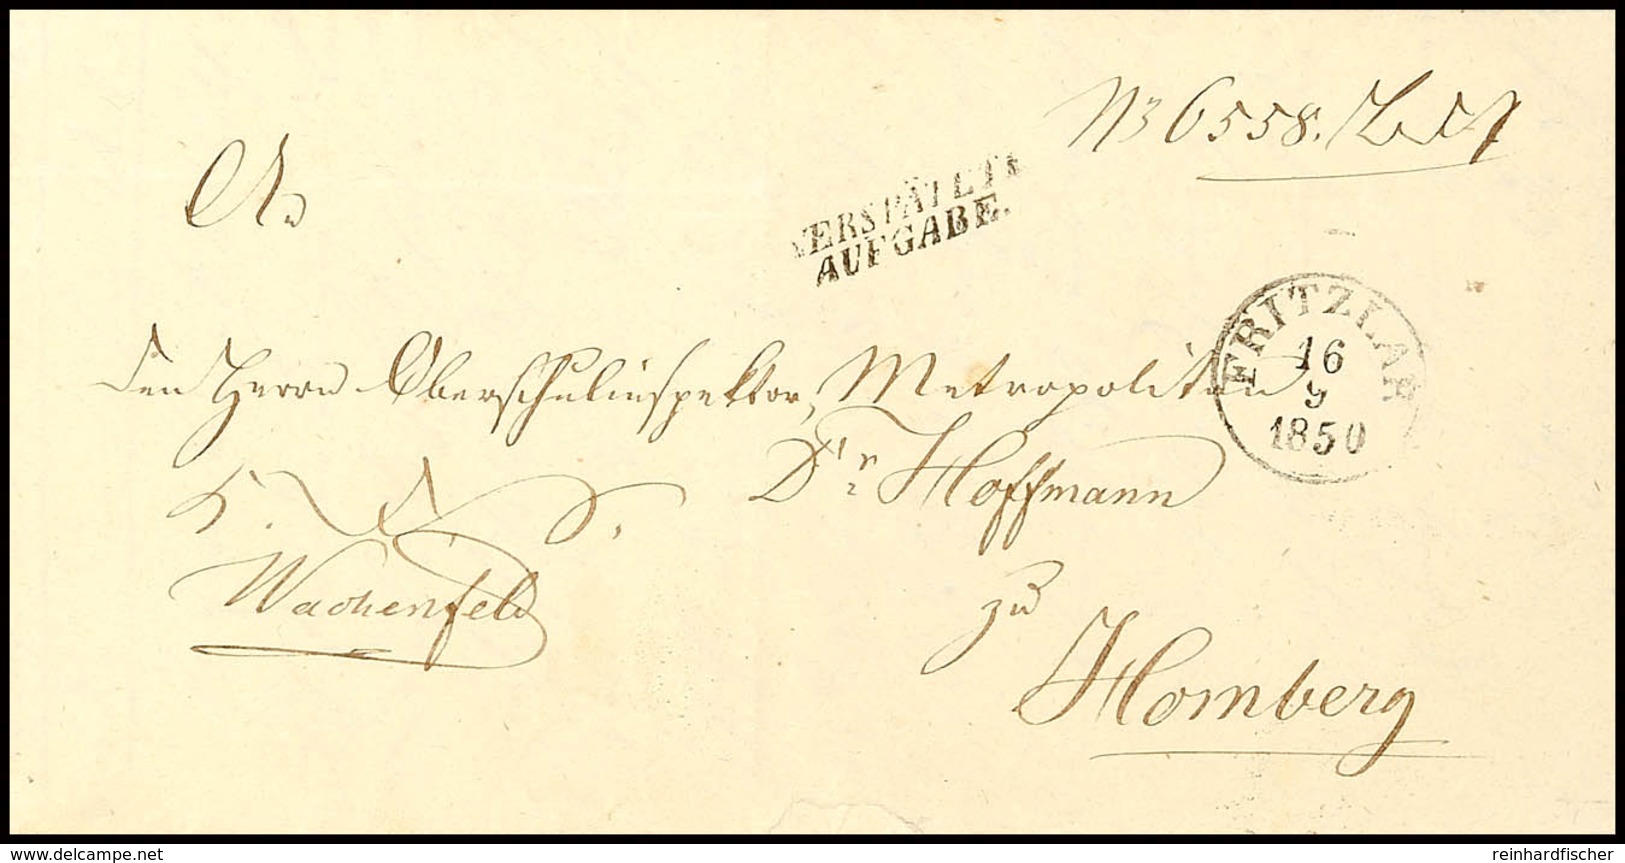 N3 6558.
An
VERSPÄTETE
AUFGABE.
FRITZLAR
16
9
1850
den Herrn Oberschulinspektor, Metropolitan
Dr. Hoffmann
Wachenfeld
zu
Homberg
www.delcampe.net
reinhardfischer